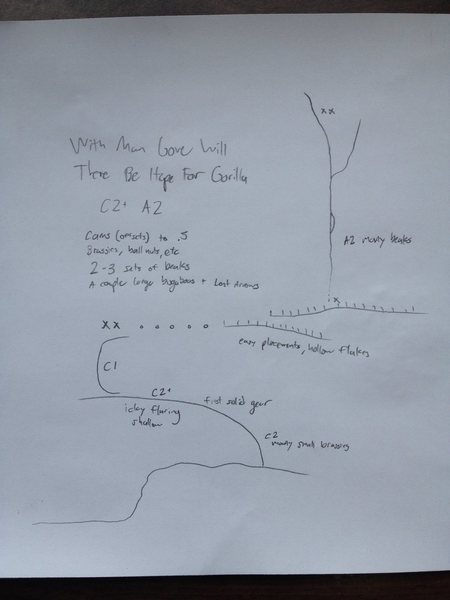 With Man Gone Will
There Be Hope For Gorilla
C2+ A2
Cams (offsets) to .5
Brassies, ball nuts, etc
2-3 sets of beaks
A couple large bugaboos + Lost Arrows
xx
A2 mostly beaks
x
xx
easy placements, hollow flakes
C1
C2+
first solid gear
icky flaring
shallow
C2
mostly small brassies